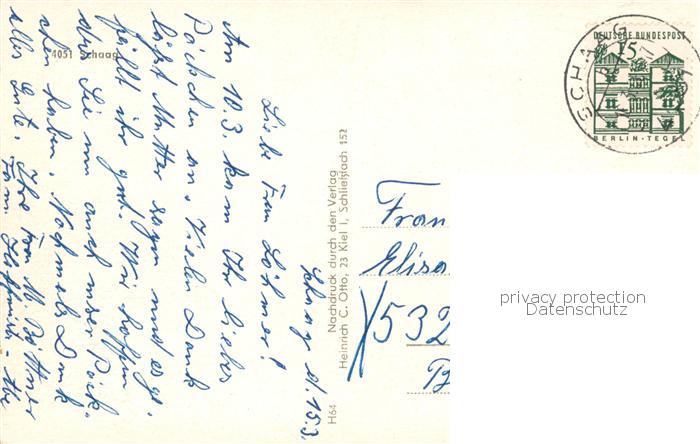 4051 Schaag
Schaag d. 15.3.
Liebe Frau Löhmer!
Am 10.3. kam Ihr liebes
Päckchen an. Vielen Dank
läßt Mutter sagen und es ge-
fällt ihr gut. Wir hoffen
das Sie nun auch unser Päck-
chen haben. Nochmals Dank
alles Gute. Ihre Frau M. Büttner
Fam. Hoffmist
Nachdruck durch den Verlag
Heinrich C. Otto, 23 Kiel 1, Schließfach 152
H64
DEUTSCHE BUNDESPOST
15
BERLIN-TEGEL
SCHAAG
Frau
Elisa
532
privacy protection
Datenschutz